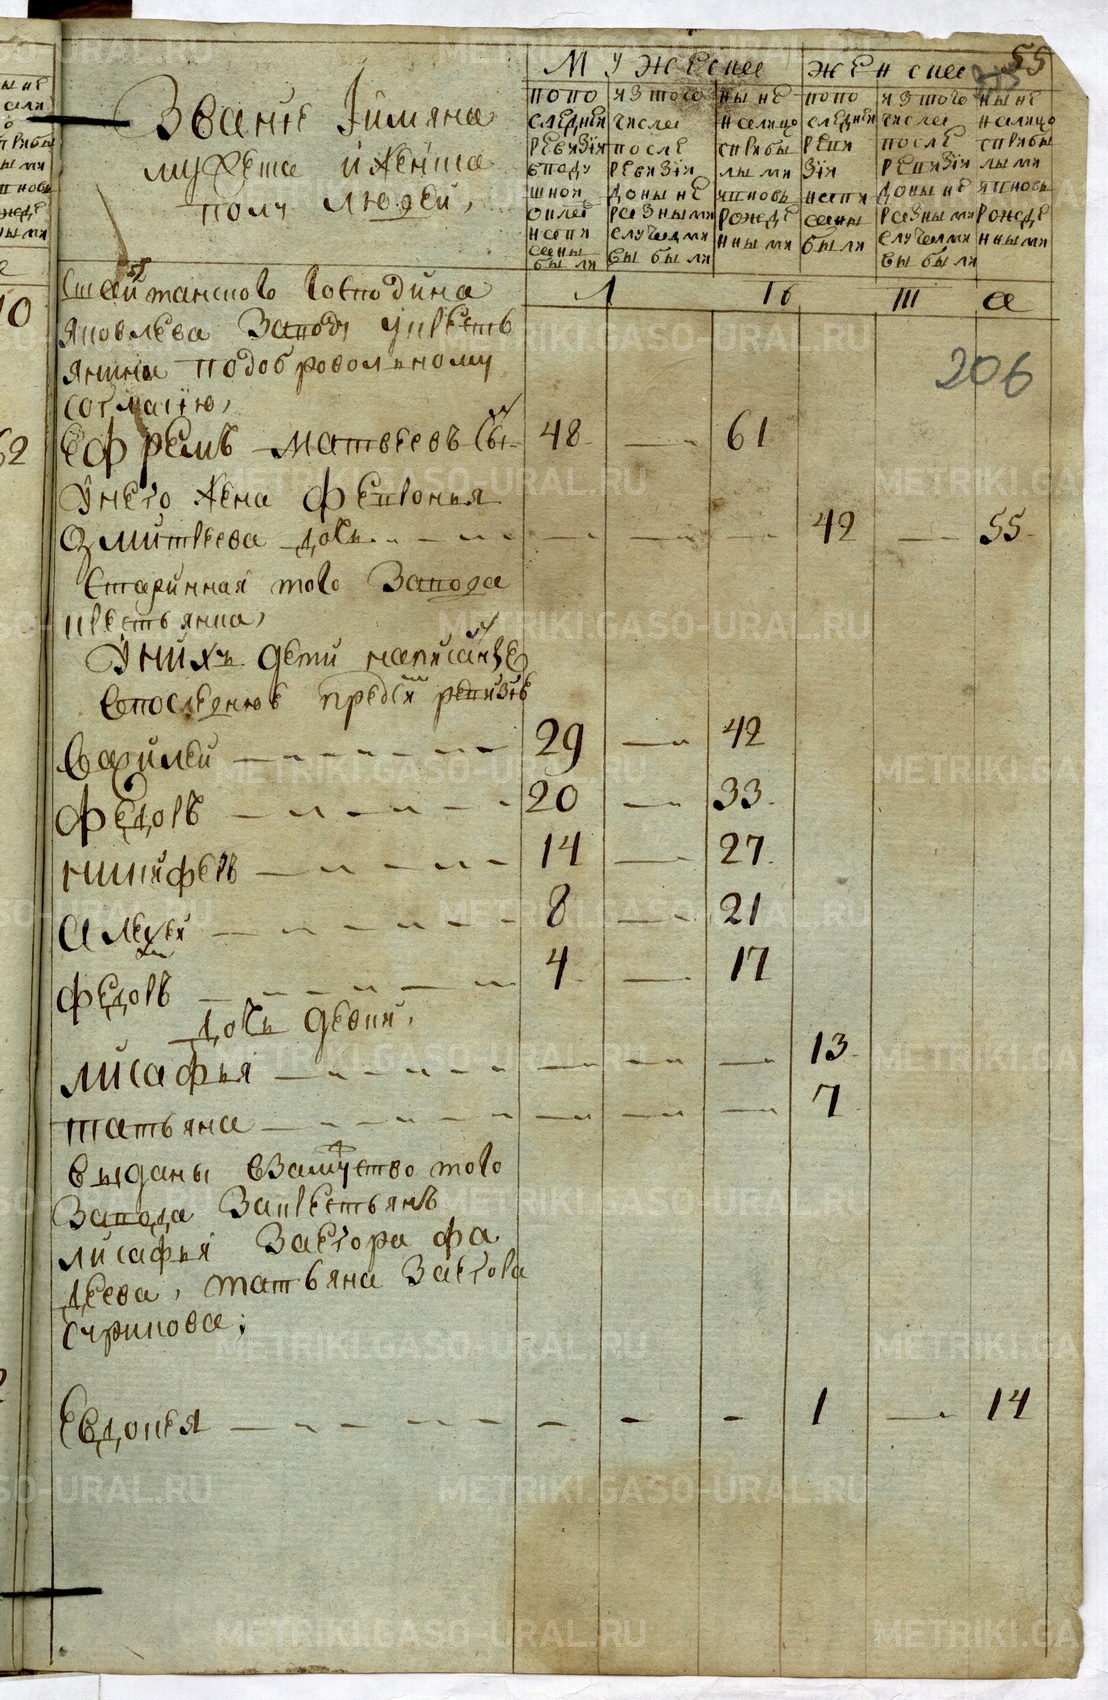 55
Мужеска Женска
Звание Iимяна
мужеска иженска
полу людей,
попо
следней
ревизiи
вподу
шной
оклад
написаны
были
изтого
числа
после
ревизiи
доныне
разными
случаями
выбыли
ныне
налицо
сприбы
лыми
ивновь
рожде
нными
попо
следней
реви
зiи
написаны
были
изтого
числа
после
ревизiи
доныне
разными
случаями
выбыли
ныне
налицо
сприбы
лыми
ивновь
рожде
нными
Шайтанского Господина
Яковлева Заводу крестьянина
подобровольному
согласiю,
206
Ефремъ Матвеевъ Снъ 48 61
Унего жена Февронья
Дмитреева дочь 42 55
Старинная того Завода
крестьянка,
Унихъ дети написанные
впоследнюю предсiи ревизiе
Василей 29 42
Федоръ 20 33
Никифоръ 14 27
Алексей 8 21
Федоръ 4 17
дочь девки,
Лисафья 13
Татьяна 7
выданы взамужство того
Завода Закрестьянъ
Лисафья Заегора Фа
деева, Татьяна Заегора
Скрипова;
Евдокея 1 14
METRIKI.GASO-URAL.RU